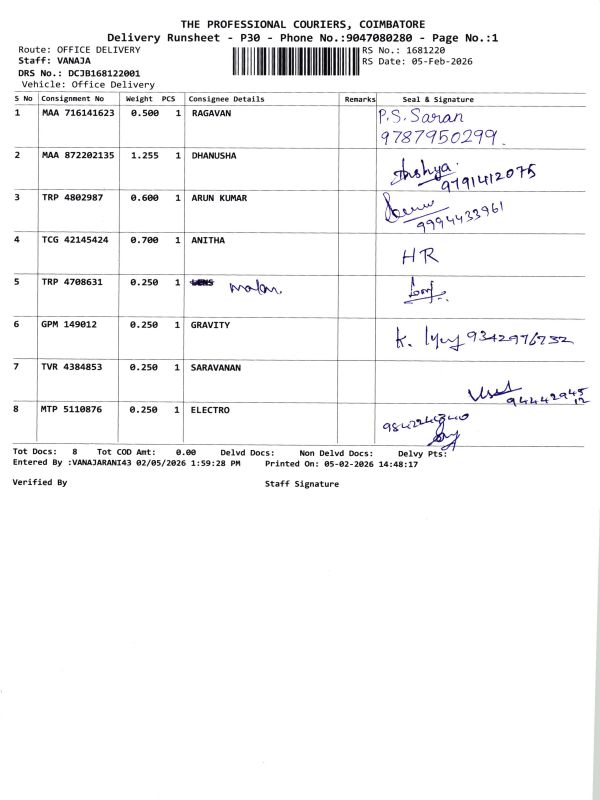 THE PROFESSIONAL COURIERS, COIMBATORE
Delivery Runsheet - P30 - Phone No.:9047080280 - Page No.:1
Route: OFFICE DELIVERY RS No.: 1681220
Staff: VANAJA RS Date: 05-Feb-2026
DRS No.: DCJB168122001
Vehicle: Office Delivery
S No Consignment No Weight PCS Consignee Details Remarks Seal & Signature
1 MAA 716141623 0.500 1 RAGAVAN P.S. Saran
9787950299.
2 MAA 872202135 1.255 1 DHANUSHA
9791412075
3 TRP 4802987 0.600 1 ARUN KUMAR
9994433961
4 TCG 42145424 0.700 1 ANITHA HR
5 TRP 4708631 0.250 1
6 GPM 149012 0.250 1 GRAVITY K. 9342976732
7 TVR 4384853 0.250 1 SARAVANAN
94442945
12
8 MTP 5110876 0.250 1 ELECTRO
Tot Docs: 8 Tot COD Amt: 0.00 Delvd Docs: Non Delvd Docs: Delvy Pts:
Entered By :VANAJARANI43 02/05/2026 1:59:28 PM Printed On: 05-02-2026 14:48:17
Verified By Staff Signature